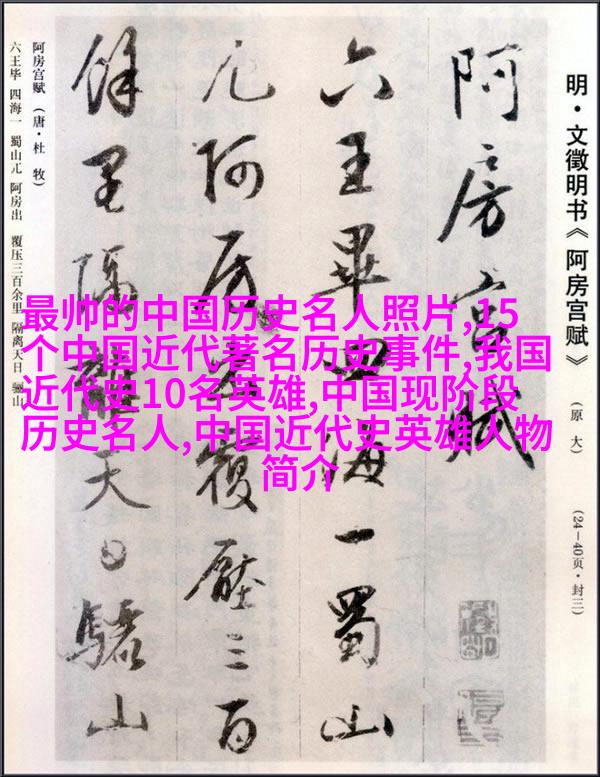 明·文徵明书《阿房宫赋》
(原大)
(24—40页·封三)
阿房宫赋
六王畢四海一蜀山
兀阿房出覆壓三百
餘里隔離天日驪山
阿房宫赋(唐·杜牧)
六王毕 四海一 蜀山兀 阿房出 覆压三百余里 隔离天日 骊山
最帅的中国历史名人照片,15
个中国近代著名历史事件,我国
近代史10名英雄,中国现阶段
历史名人,中国近代史英雄人物
简介